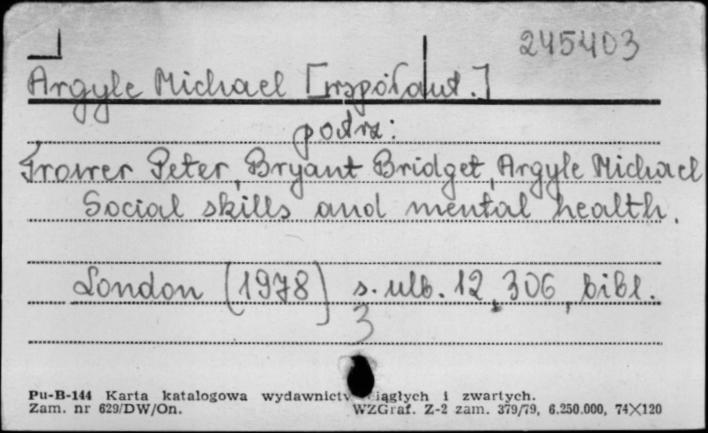 245403
Argyle Michael [współaut.]
patrz:
Trower Peter, Bryant Bridget, Argyle Michael
Social skills and mental health.
London (1978) s. ulb. 12, 306, bibl.
3
Pu-B-144 Karta katalogowa wydawnictw ciągłych i zwartych.
Zam. nr 629/DW/On. WZGraf. Z-2 zam. 379/79, 6.250.000, 74×120